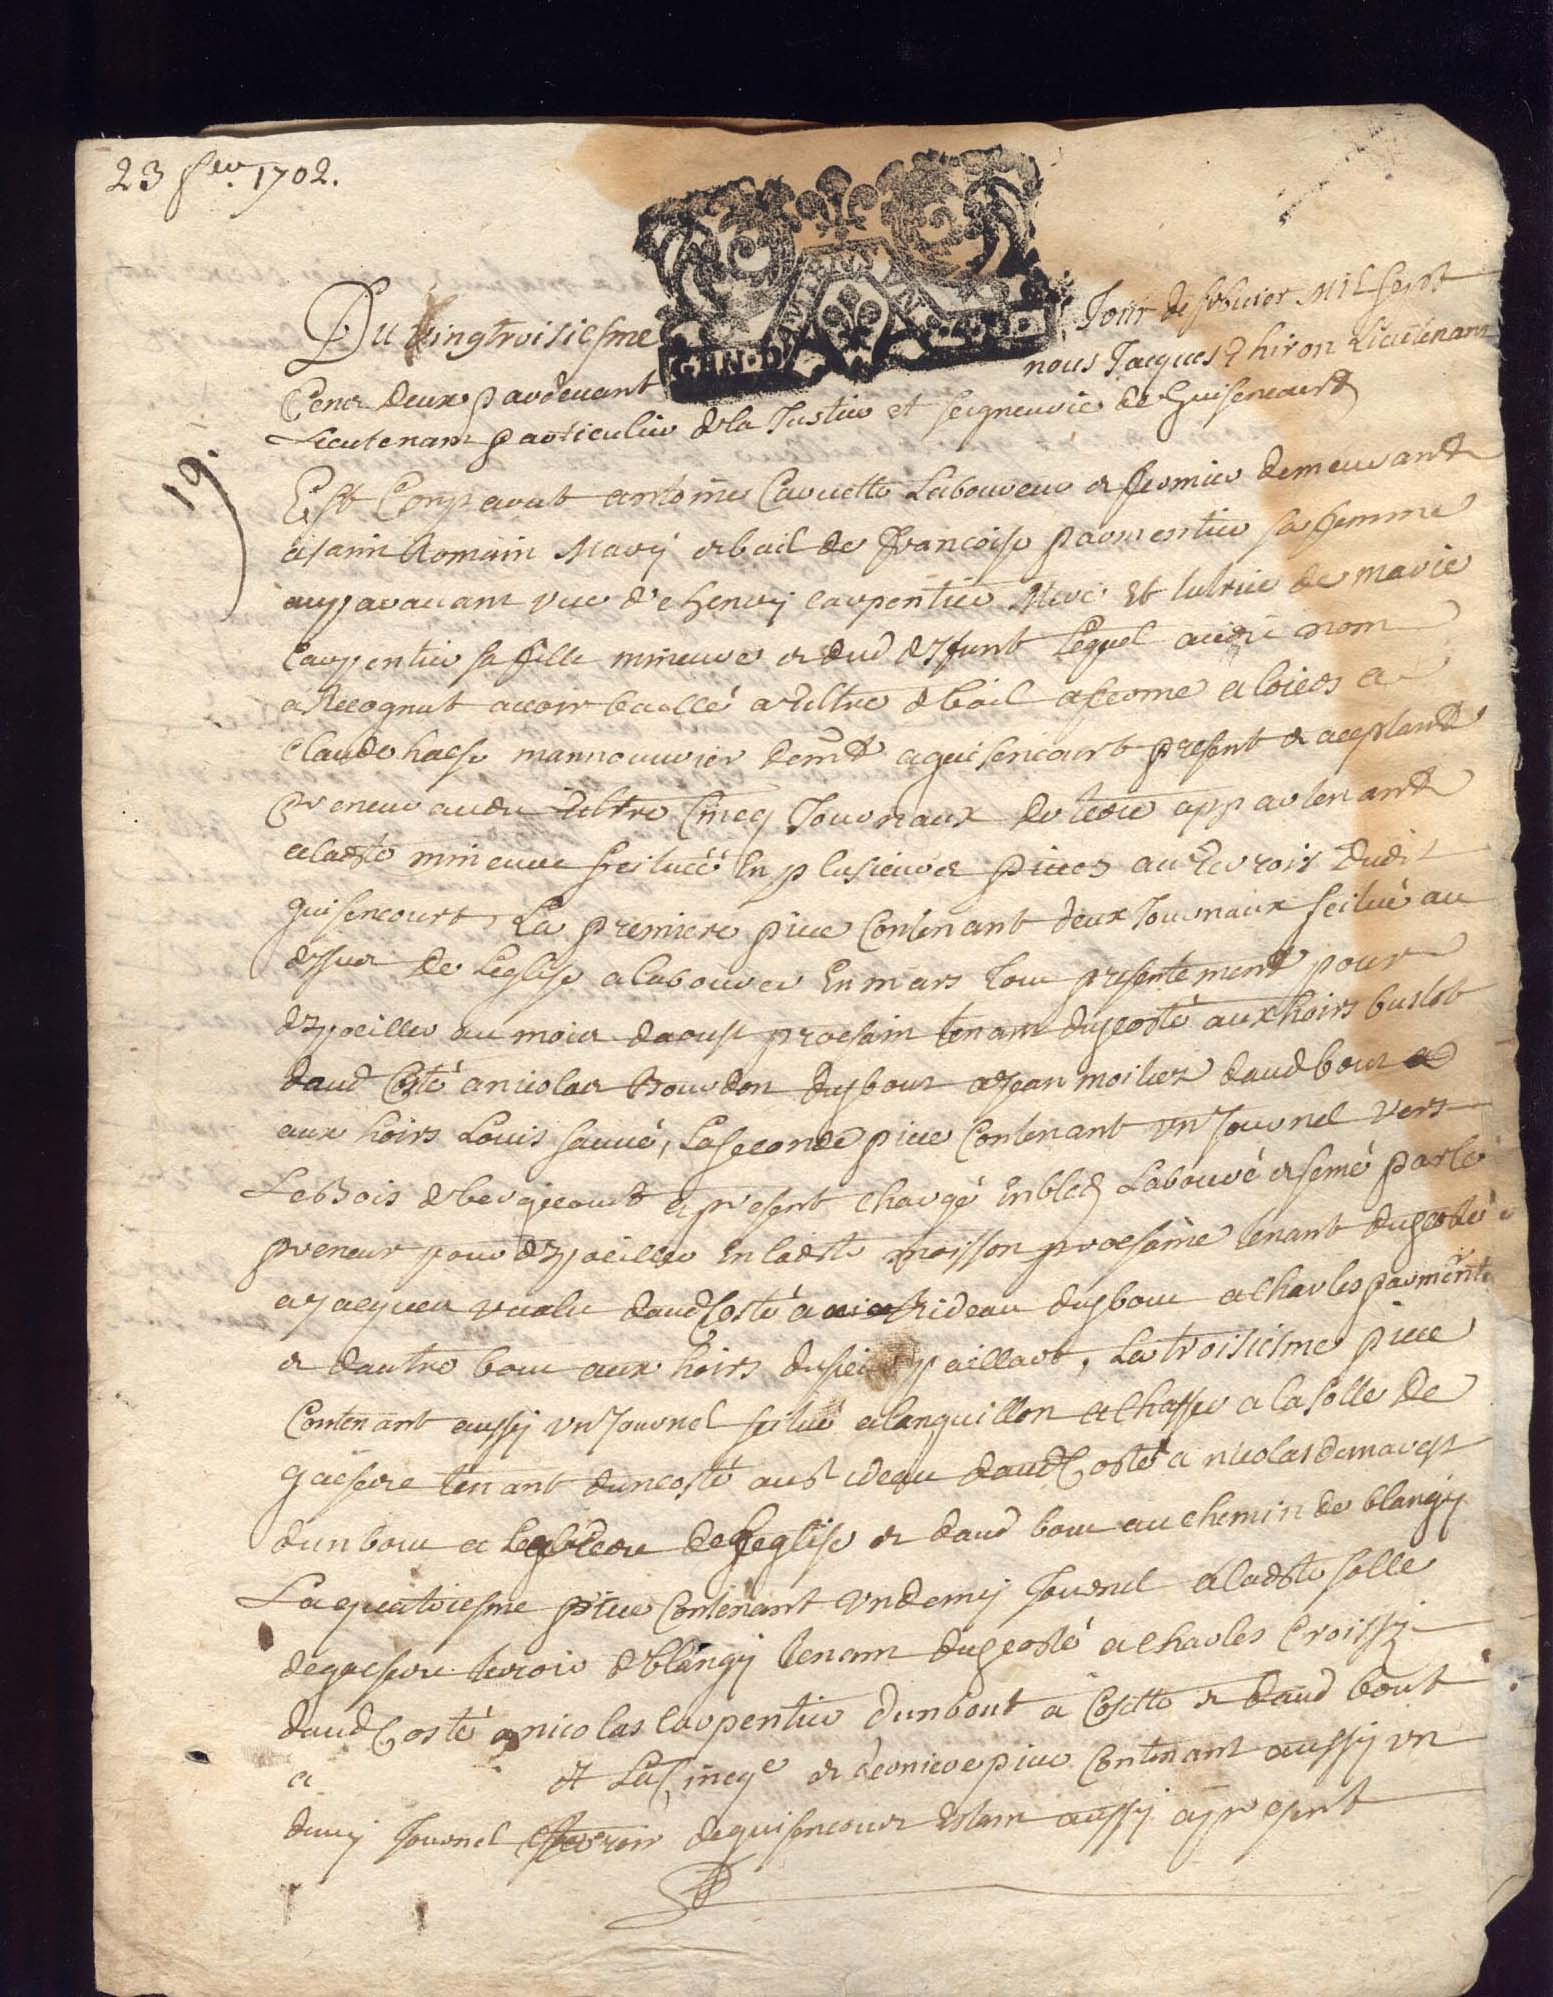 23 fev. 1702.
GEN. D
Du vingtroisiesme Jour de febvrier Mil sept
Cens deux pardevant nous Jacques Thiron Lieutenant
Lieutenant particulier de la Justice et seigneurie de Guisencourt
19.
Est Comparut antoine Caruette Laboureur et fermier demeurant
a saint Romain Mary et bail de francoise parmentier sa femme
auparavant vve de henry Carpentier Mere Et tutrice de marie
Carpentier sa fille mineure et dud deffunt Lequel audit nom
a Recognut avoir baillé a tiltre de bail a ferme et loiers a
Claude hasse mannouvrier demt a guisencourt present et aceptant
preneur audit tiltre Cincq Journaux de terre appartenant
a ladte mineure scituéé En plusieurs pieces au terroir dudit
guisencourt, La premiere piece Contenant deux Journaux scitué au
dessus de Leglise a labourer En mars Tour presentement pour
despoeiller au mois daoust procsain tenant dug costé aux hoirs buslot
daud Costé a nicolas Bourdon dug bout a Jean moilier daud bout
aux hoirs Louis sauvé, La seconde piece Contenant un Journel vers
Le Bois de bergicourt a present Chargé En bled Labouré et semé par le
preneur pour despoeiller En ladte moisson procsaine tenant dug costé
a Jacques daud Costé a Rideau dug bout a Charles parmentr
et dautre bout aux hoirs du sieur paillart, La troisiesme piece
Contenant aussy un Journel scitué a languillon a la solle de
gaesere tenant dun costé au Rideau daud Costé a nicolas demarest
dun bout a de Leglise et daud bout au chemin de blangy
La quatriesme piece Contenant un demy Journel a ladte solle
de gaesere terroir de blangy tenant dug costé a Charles Croissy
daud Costé a nicolas Carpentier dun bout a Cosette et daud bout
a et La Cincqe et derniere piece Contenant aussy un
demy Journel terroir de guisencour Estant aussy a present